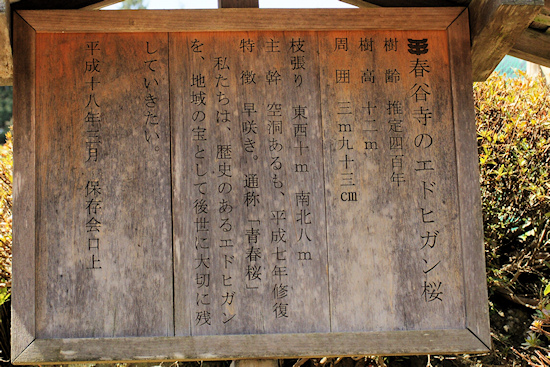 春谷寺のエドヒガン桜
樹齢 推定四百年
樹高 十二m
周囲 三m九十三㎝
枝張り 東西十m 南北八m
主幹 空洞あるも、平成七年修復
特徴 早咲き。通称「青春桜」
私たちは、歴史のあるエドヒガン
を、地域の宝として後世に大切に残
していきたい。
平成十八年三月 保存会口上